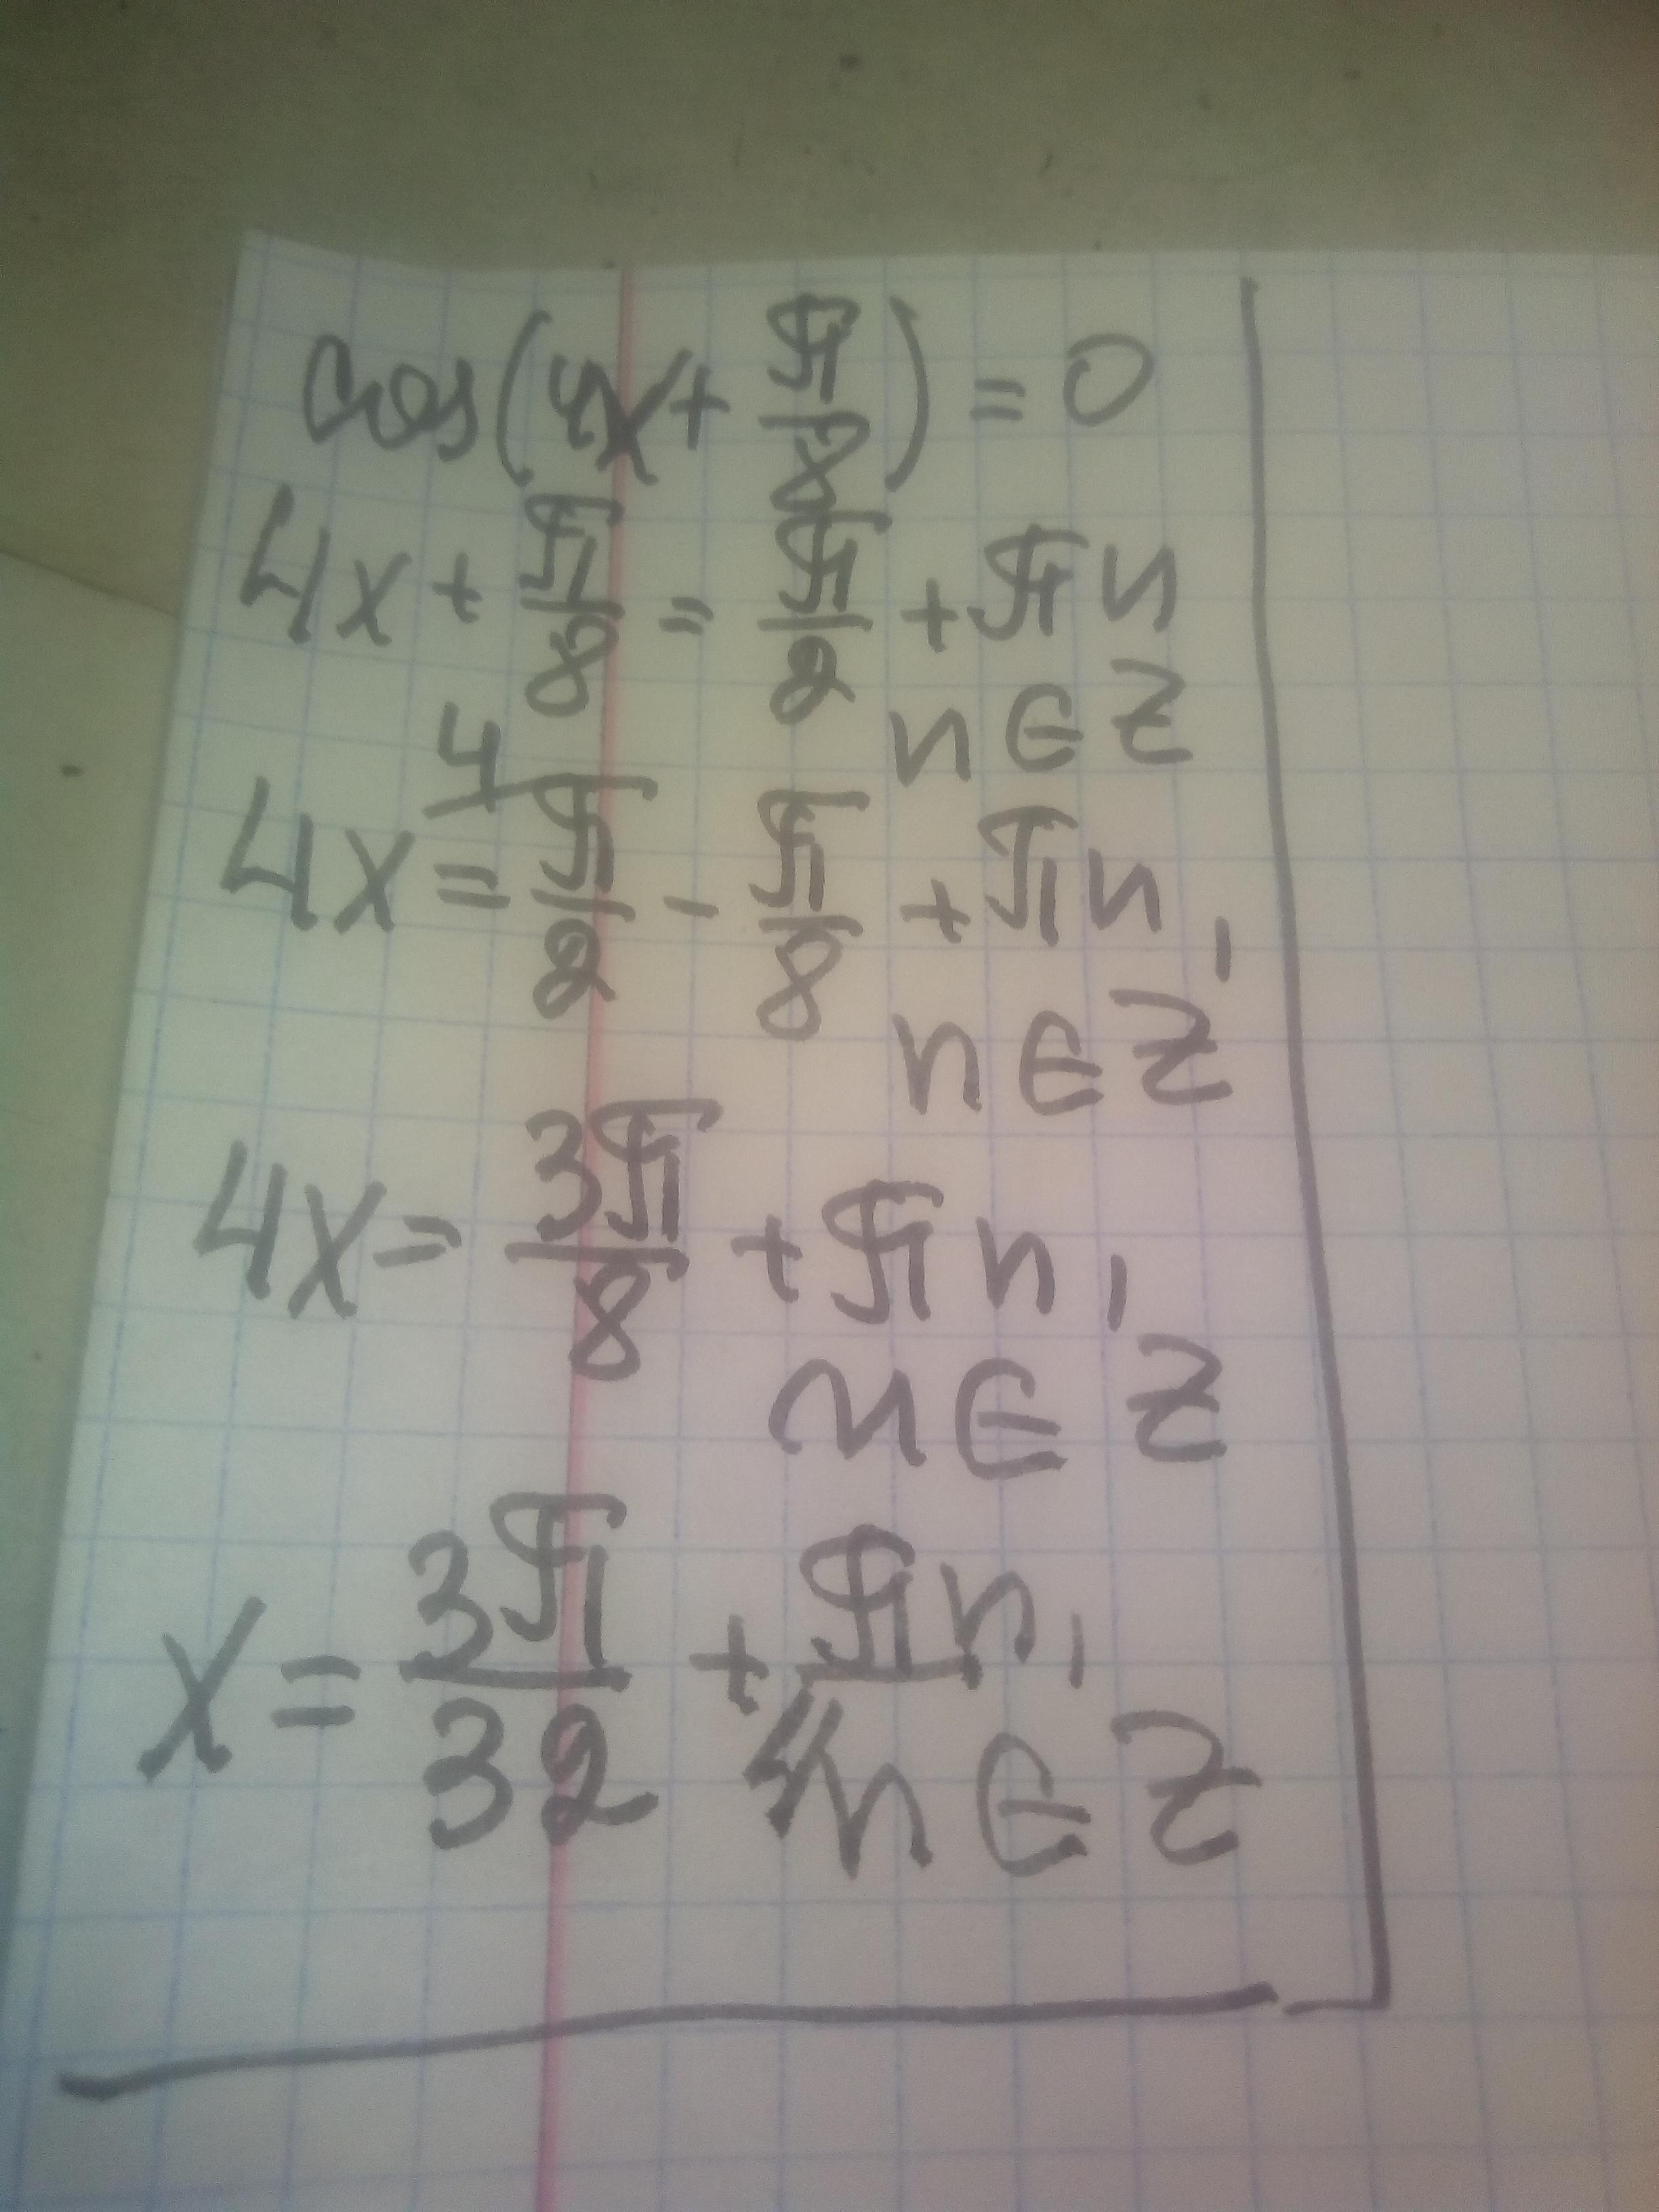 cos(4x + π/8) = 0
4x + π/8 = π/2 + πn
n ∈ Z
4x = 4π/2 - π/8 + πn,
n ∈ Z
4x = 3π/8 + πn,
n ∈ Z
x = 3π/32 + πn/4,
n ∈ Z